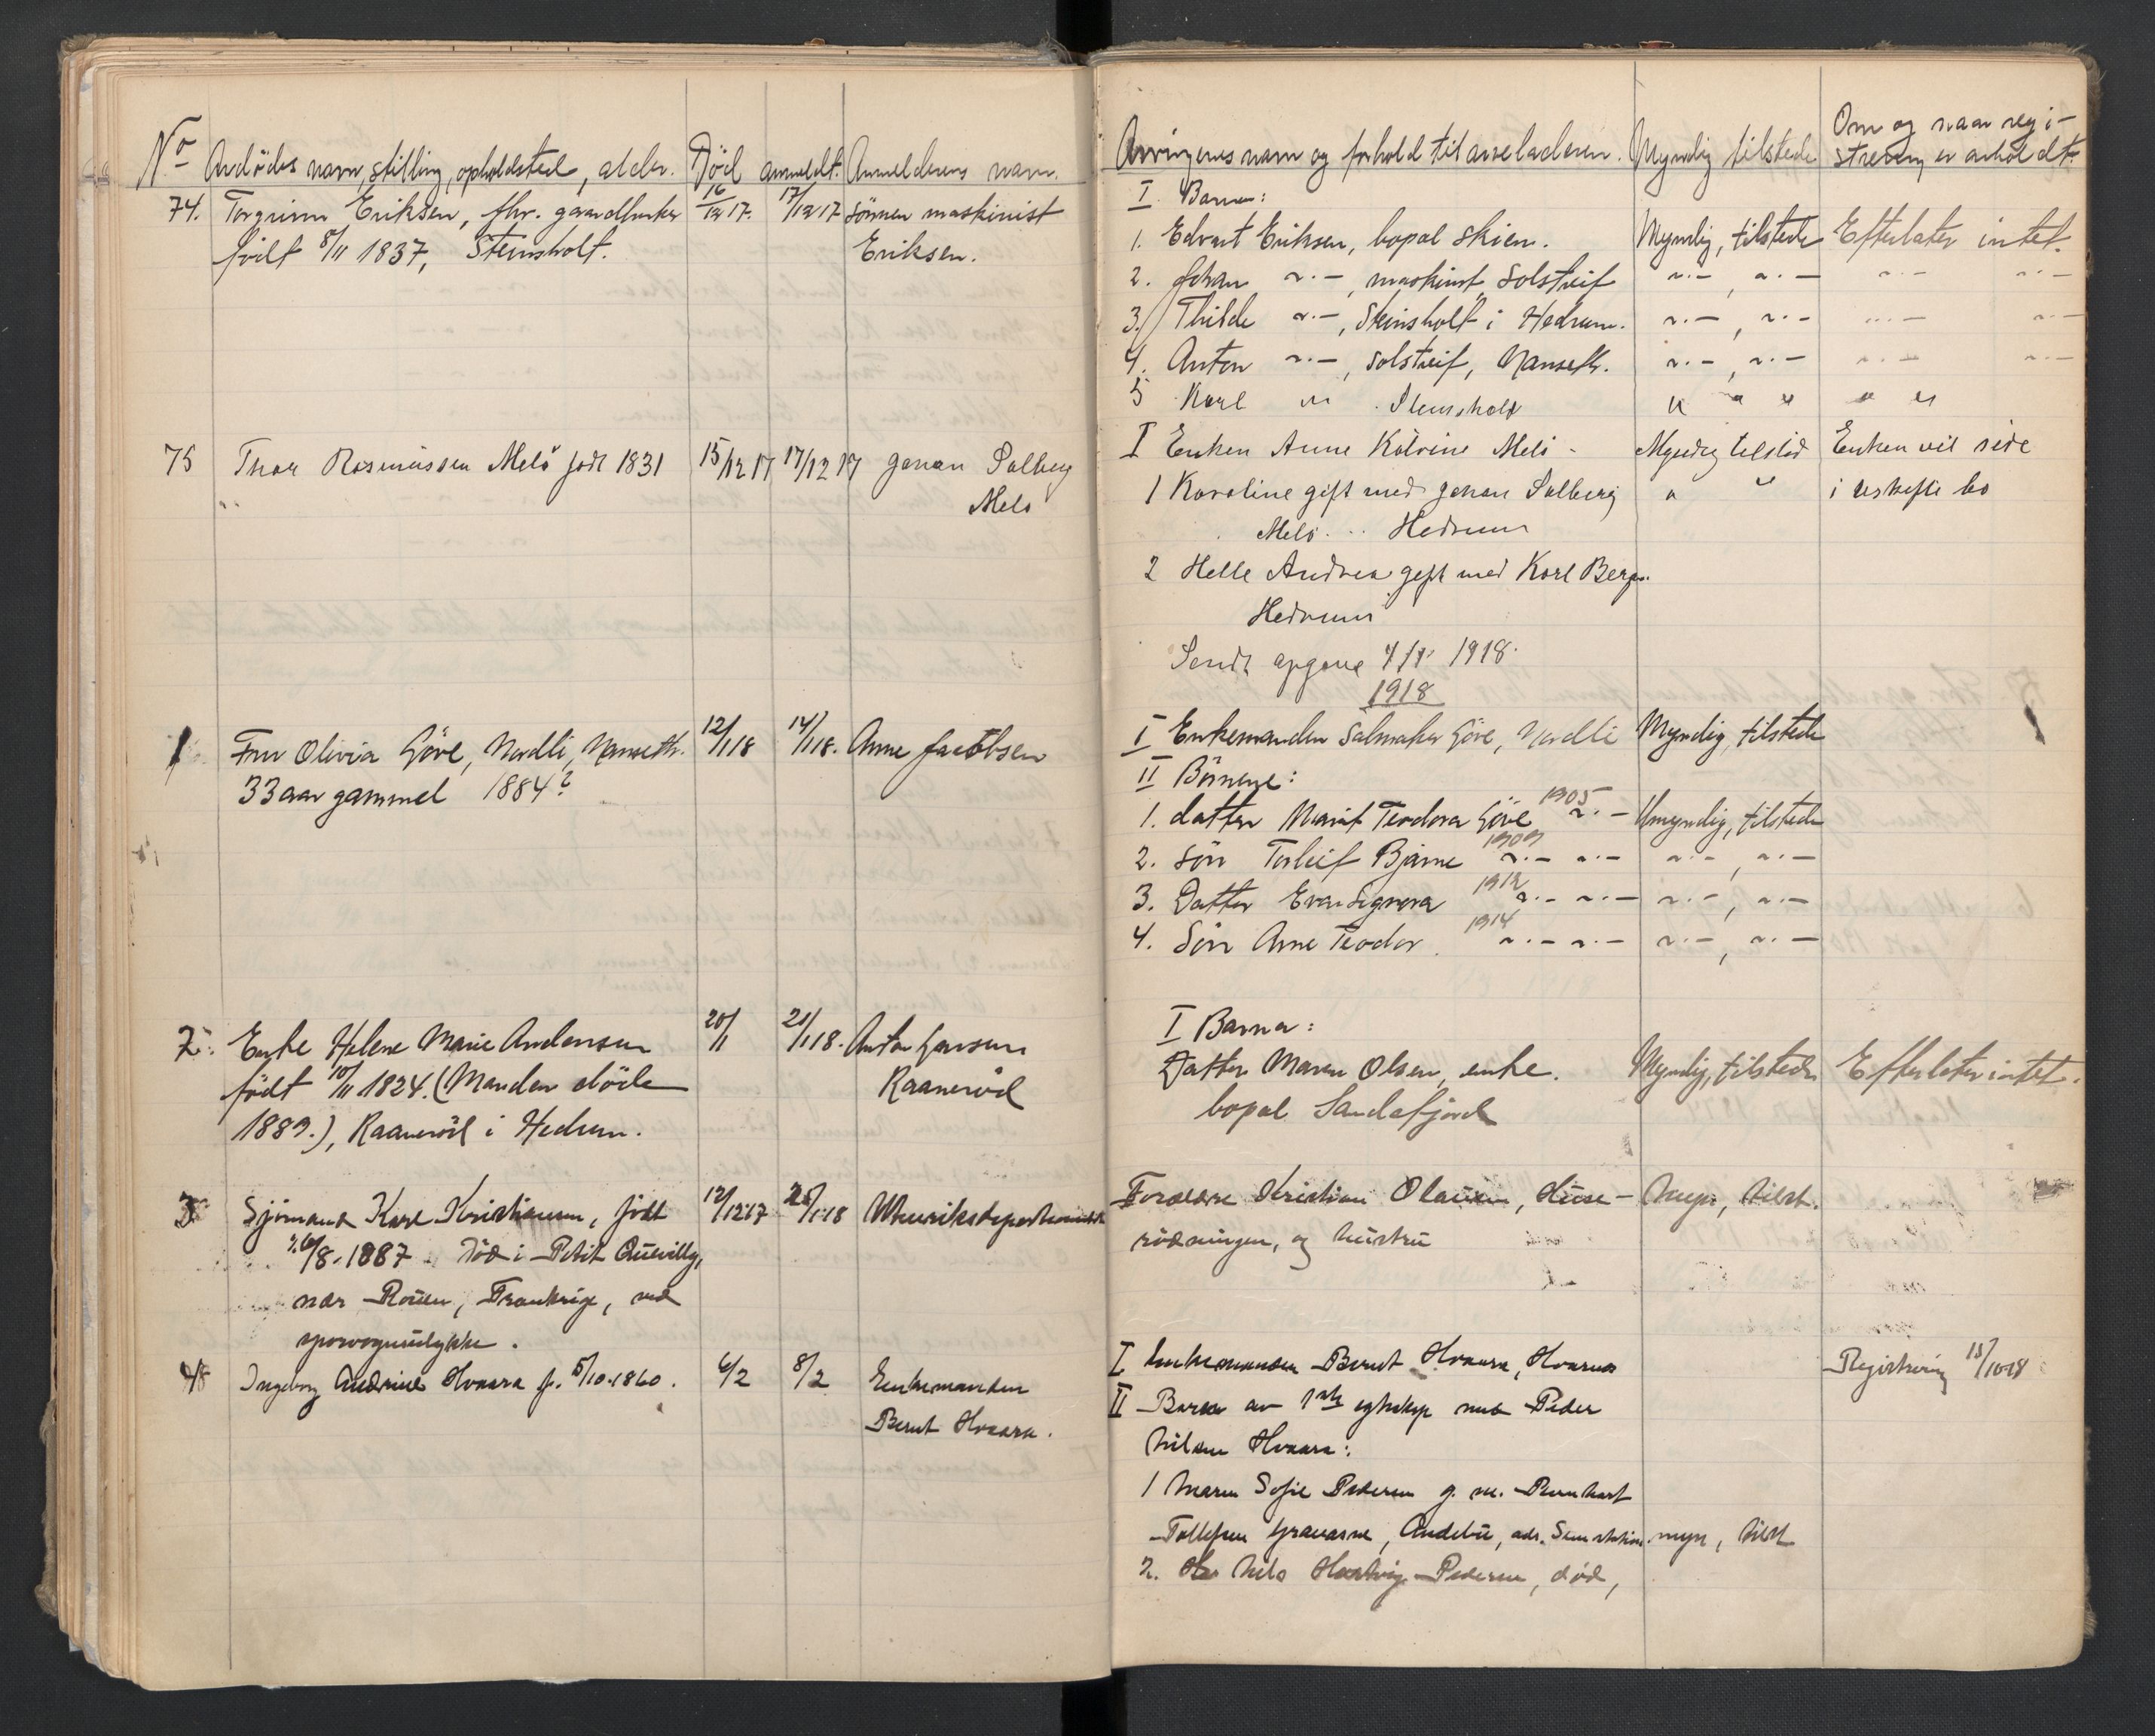 No Avdödes navn, stilling, opholdsted, alder. Död anmeldt. Anmelderens navn.
74. Torgrim Eriksen, fhr. gaardbruker 16/12 17. 17/12 17 Sönnen maskinist
födt 8/11 1837, Stensholt. Eriksen.
75 Thor Rasmussen Melö födt 1831 15/12 17 17/12 17 Johan Solberg
Melö
1 Fru Olivia Göve, Nordli, Nanseth. 12/1 18 14/1 18. Anne Jacobsen
33 aar gammel 1884?
2. Enke Helene Marie Andersen 20/1 21/1 18. Anton Hansen
födt 10/11 1824. (Manden döde Raaneröd
1889.), Raaneröd i Hedrum.
3 Sjömand Karl Kristiansen, födt 12/12 17 /1 18 Utenriksdepartementet
26/8. 1887. Död i Petit Quevilly,
nær Rouen, Frankrige, ved
sporvognsulykke.
4 Ingeborg Andrine Hvaara f. 5/10. 1860. 6/2 8/2 Enkemanden
Bernt Hvaara.
Arvingenes navn og forhold til arveladeren. Myndig tilstede Om og naar regi-
strering er avholdt.
I. Barn:
1. Edvart Eriksen, bopal Skien. Myndig, tilstede Efterlater intet.
2. Johan -"-, maskinist, Solstreif -"-, -"- -"- -"-
3. Thilde -"-, Steinsholt i Hedrum. -"-, -"- -"- -"-
4. Anton -"-, Solstreif, Nanseth. -"-, -"- -"- -"-
5 Karl " Stensholt " " " " "
I Enken Anne Katrine Melö - Myndig tilsted Enken vil side
1 Karoline gift med Johan Solberg " " i uskiftet bo
Melö Hedrum
2 Helle Andrea gift med Karl Berg.
Hedrum
Sendt opgave 4/1 1918.
1918
I Enkemanden Salmaker Göve, Nordli Myndig, tilstede
II Börnene:
1. datter Marit Teodora Göve 1905 -"- Umyndig, tilstede
2. Sön Torleif Bjarne 1909 -"- -"- -"-, -"-
3. Datter Eva Signora 1912 -"- -"- -"-, -"-
4. Sön Arne Teodor. 1914 -"- -"- -"-, -"-
I Barna:
Datter Maren Olsen, enke. Myndig, tilstede Efterlater intet.
bopal Sandefjord
Forældre Kristian Olausen, Huse- myn, tilst.
rödningen, og hustru
I Enkemanden Bernt Hvaara, Hvarnes Registrering 18/10 18
II Barn av 1ste egteskap med Peder
Nilsen Hvaara:
1 Maren Sofie Pedersen g. m. Bernhart
Tollefsen Gravarne, Andebu, adr. Sem station. myn, tilst
2. Nils Hartvig Pedersen, död,